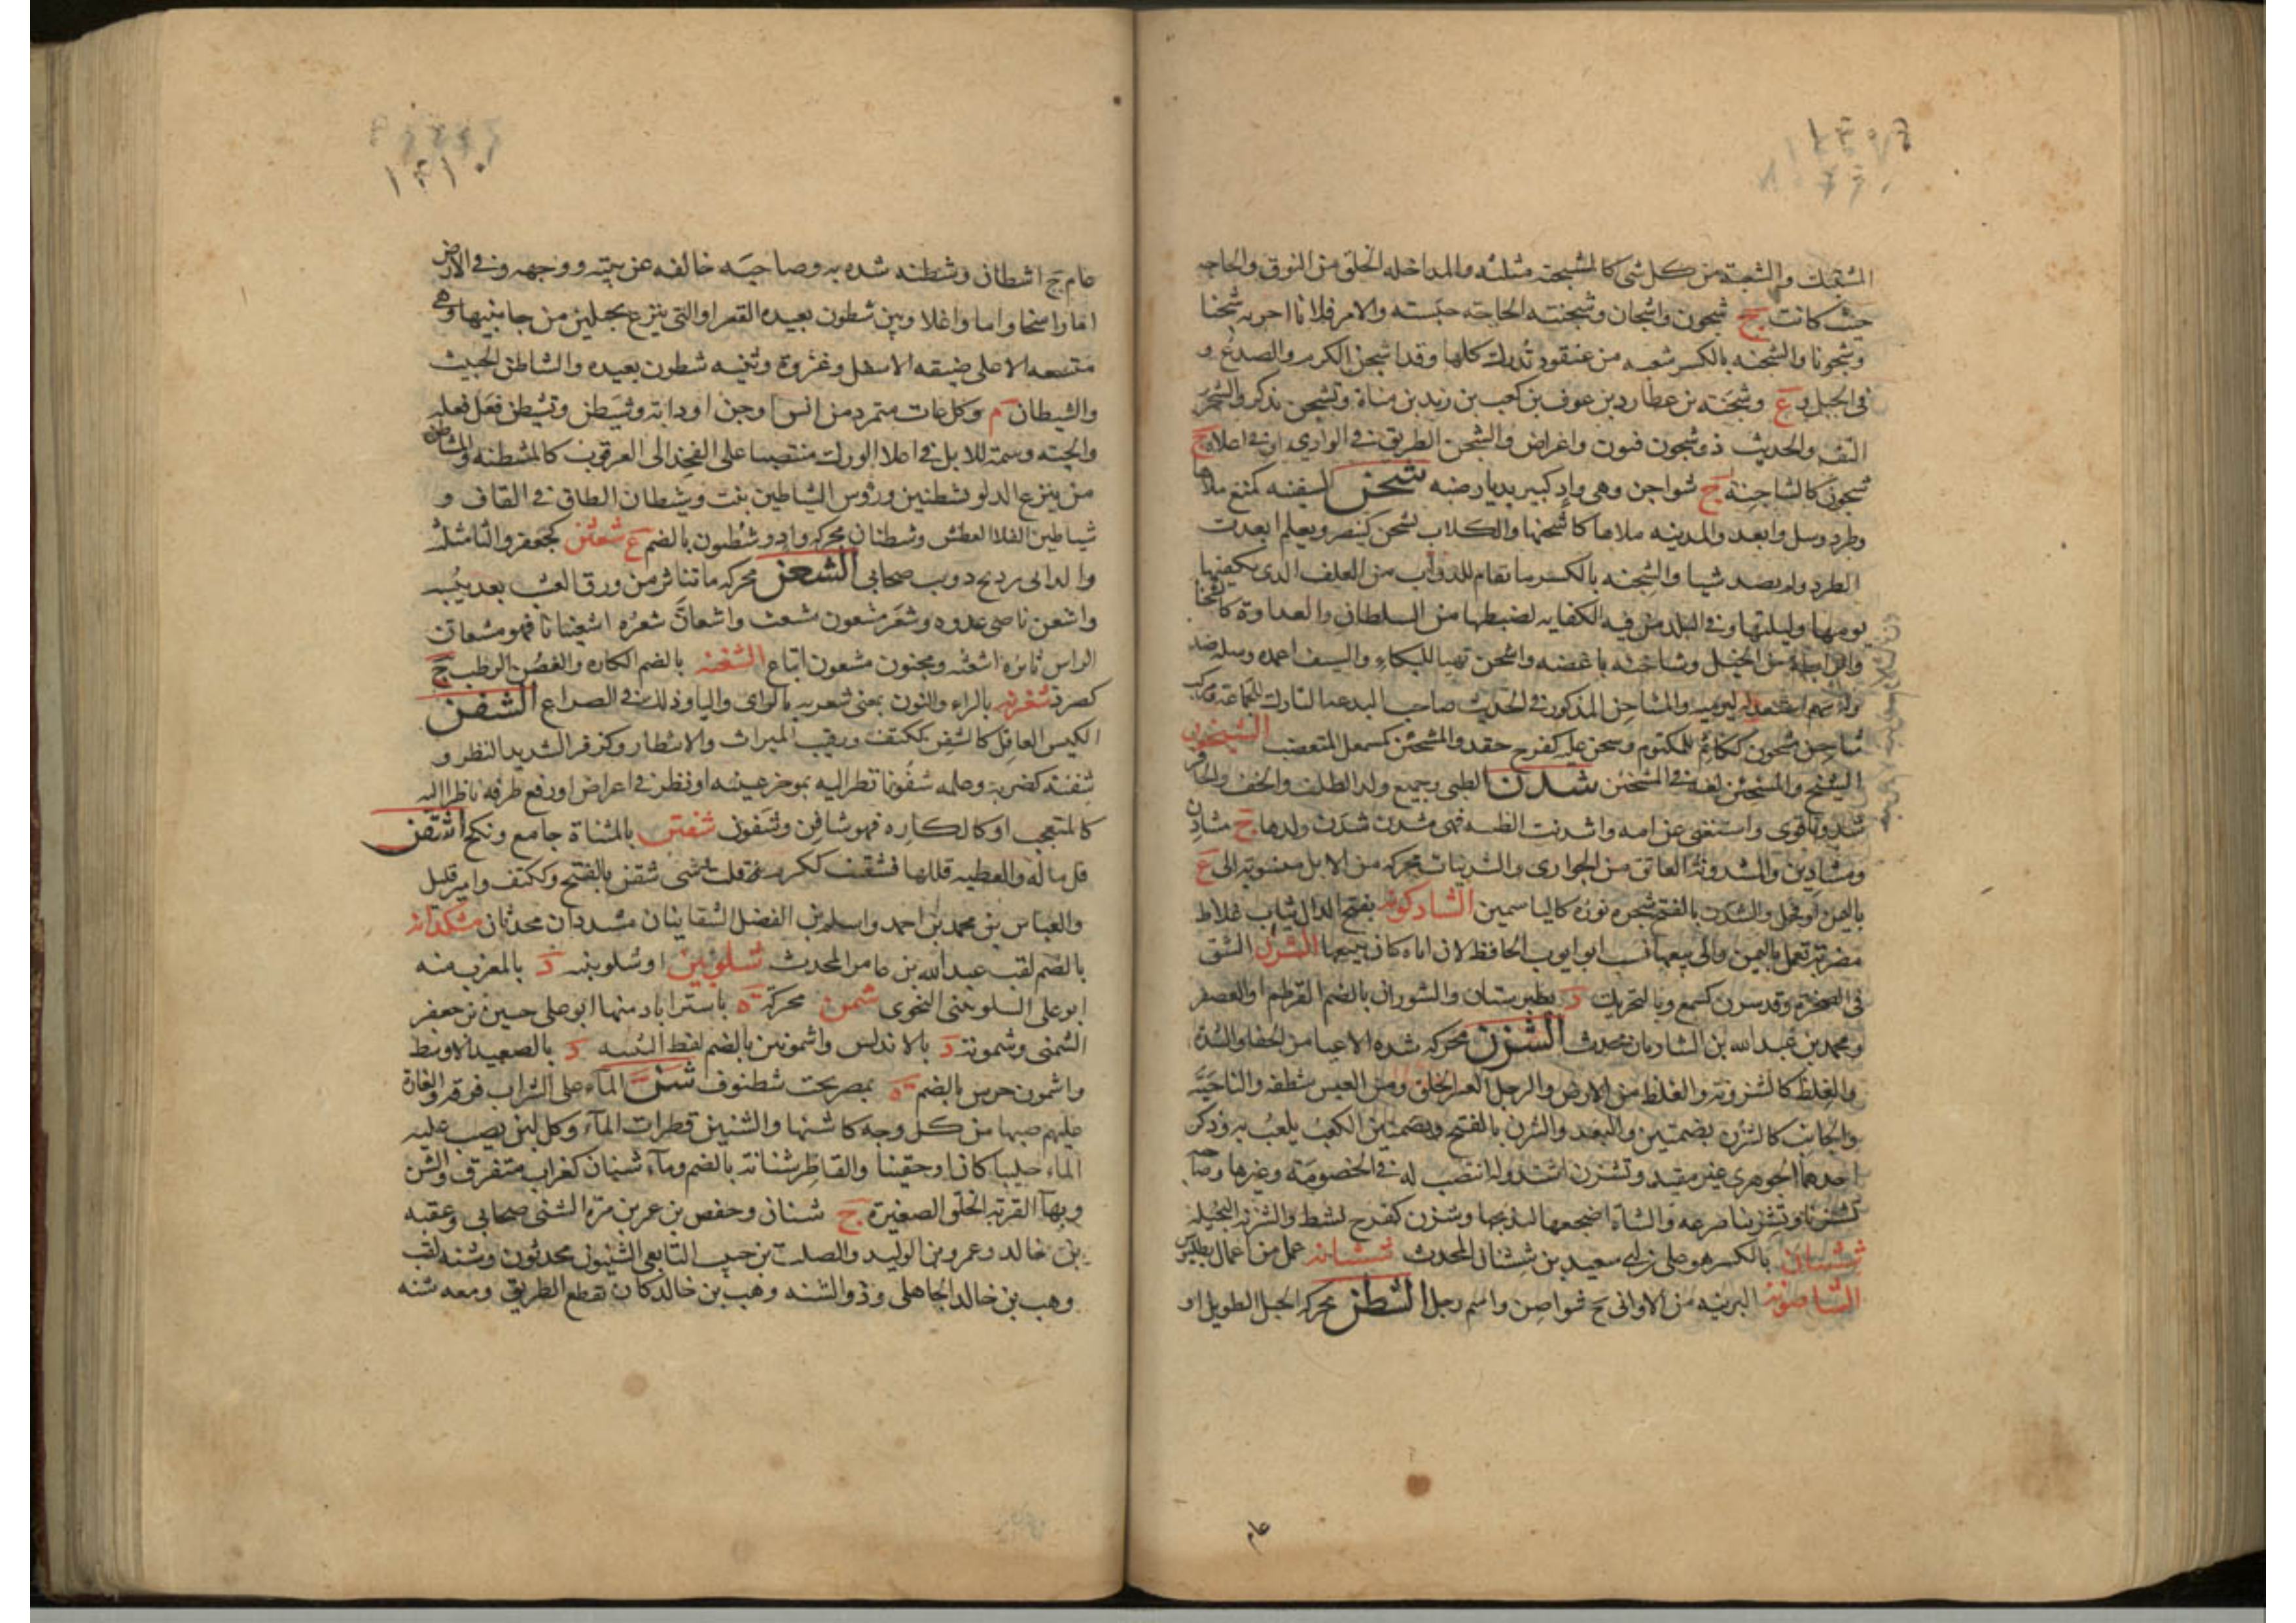 المشتبك والشعبة من كل شى كالشجنة مثلثه والمداخله الخلق من النوق والحاجه
حيث كانت ج شجون واشجان وشجنته الحاجة حبسته والامر فلانا احزنه شجنا
وشجونا والشجنه بالكسر شعبه من عنقود تدرك كلها وقد اشجن الكرم والصدع و
فى الجبل وع وشجنه بن عطارد بن عوف بن كعب بن زيد بن مناة وتشجن تذكر والشجر
التف والحديث ذو شجون فنون واغراض والشجن الطريق فى الوادى او فى اعلاه ج
شجون كالشاجنة ج شواجن وهى واد كبير بديار ضبه شحن السفينه كمنع ملأها
وطرد وسل وابعد والمدينه ملاها كاشحنها والكلاب تشحن كينصر ويعلم ابعدت
الطرد ولم يصد شيا والشحنه بالكسر ما تقام للدواب من العلف الذى يكفيها
يومها وليلتها وفى البلد من فيه الكفايه لضبطها من السلطان والعداوة كالشحنا
والرابطة من الخيل وشاحنه باغضه واشحن تهيا للبكاء والسيف اغمده وسله ضد
وله بسهم استعد له ليرميه والمشاحن المذكور فى الحديث صاحب البدعه التارك للجماعة ومركب
شاحن مشحون ككاتم للمكتوم وشحن عليه كفرح حقد والمشحئن كمشمعل المتغضب الشيخون
الشيخ والمشخئن لغة فى المشحئن شدن الظبى وجميع ولد الظلف والخف والحافر
شدونا قوى واستغنى عن امه واشدنت الظبيه فهى مشدن شدن ولدها ج مشادن
ومشادين والشدونة العاتق من الجوارى والشدنيات محركه من الابل منسوبه الى ع
باليمن او فحل والشدن بالفتح شجره نوره كالياسمين الشادكونه بفتح الدال ثياب غلاظ
مضربة تعمل باليمن والى بيعها نسب ابو ايوب الحافظ لان اباه كان يبيعها الشرن الشق
فى الصخرة وقد شرن كسمع وبالتحريك د بطبرستان والشوران بالضم القرطم او العصفر
ومحمد بن عبد الله بن الشاربان محدث الشزن محركه شده الاعيا من الحفا والشدة
والغلظ كالشزونة والغلظ من الارض والرجل العسر الخلق ومن العيش شظفه والناحية
والجانب كالشزن بضمتين والبعد والشزن بالفتح وبضمتين الكعب يلعب به وذكر
احدهما الجوهرى غير مقيد وتشزن اشتد وله انتصب له فى الخصومة وغيرها وصاحبه
تشزنا وتشزينا صرعه والشاة اضجعها ليذبحها وشزن كفرح نشط والشزنه البخيله
ششان بالكسر هو على بن ابى سعيد بن ششان المحدث ششانه عمل من اعمال بطليوس
الشاصونه البرنيه من الاوانى ج شواصن واسم رجل الشطن محركه الحبل الطويل او
عام
عام ج اشطان وشطنه شده به وصاحبه خالفه عن نيته ووجهه وفى الارض
اما راسخا واما واغلا وبئر شطون بعيده القعر او التى ينزع بحبلين من جانبيها وهى
متسعه الاعلى ضيقه الاسفل وغزوة ونيه شطون بعيده والشاطن الخبيث
والشيطان م وكل عات متمرد من انس او جن او دابة وشيطن وتشيطن فعل فعله
والحية وسمة للابل فى اعلا الورك منتصبا على الفخذ الى العرقوب كالمشيطنه والمشاطن
من ينزع الدلو بشطنين ورؤس الشياطين نبت وشيطان الطاق فى القاف و
شياطين الفلا العطش وشطنان محركه واد وشطون بالضم ع شعثن كجعفر والثا مثلثه
والد ابى رديح ذويب صحابى الشعن محركه ما تناثر من ورق العشب بعد يبسه
واشعن ناصى عدوه وشعر مشعون مشعث واشعان شعره اشعينانا فهو مشعان
الراس ثائره اشعثه ومجنون مشعون اتباع الشغنه بالضم الكاره والغصن الرطب ج
كصرد شغرنه بالراء والنون بمعنى شغزبه بالزاى والبا وذلك فى الصراع الشفن
الكيس العاقل كالشفن ككتف ورقيب الميراث والانتظار وكزفر الشديد النظر و
شفنه كضربه وعلمه شفونا نظر اليه بموخر عينيه او نظر فى اعراض او رفع طرفه ناظرا اليه
كالمتعجب او كالكاره فهو شافن وشفون شفتن بالمثناة جامع ونكح اشقن
قل ماله والعطيه قللها فشقنت ككرمت قلت شى شقن بالفتح وككتف وامير قليل
والعباس بن محمد بن احمد واسلم بن الفضل الشقانيان مشددان محدثان مشكدانه
بالضم لقب عبد الله بن عامر المحدث شلوبين او شلوبينيه د بالمغرب منه
ابو على الشلوبينى النحوى شمن محركة ة باستراباد منها ابو على حسين بن جعفر
الشمنى وشمونة د بالاندلس واشمونين بالضم بلفظ التثنيه د بالصعيد الاوسط
واشمون جريس بالضم ة بمصر تحت شطنوف شن الماء على الشراب فرقه والغارة
عليهم صبها من كل وجه كاشنها والشنين قطرات الماء وكل لبن يصب عليه
الماء حليبا كان او حقينا والقاطر شنانة بالضم وماء شنان كغراب متفرق والشن
وبهاء القربة الخلق الصغيرة ج شنان وحفص بن عمر بن مره الشنى صحابى وعقبه
بن خالد وعمرو بن الوليد والصلت بن حبيب التابعى الشنيون محدثون وشنه لقب
وهب بن خالد الجاهلى وذو الشنه وهب بن خالد كان يقطع الطريق ومعه شنه